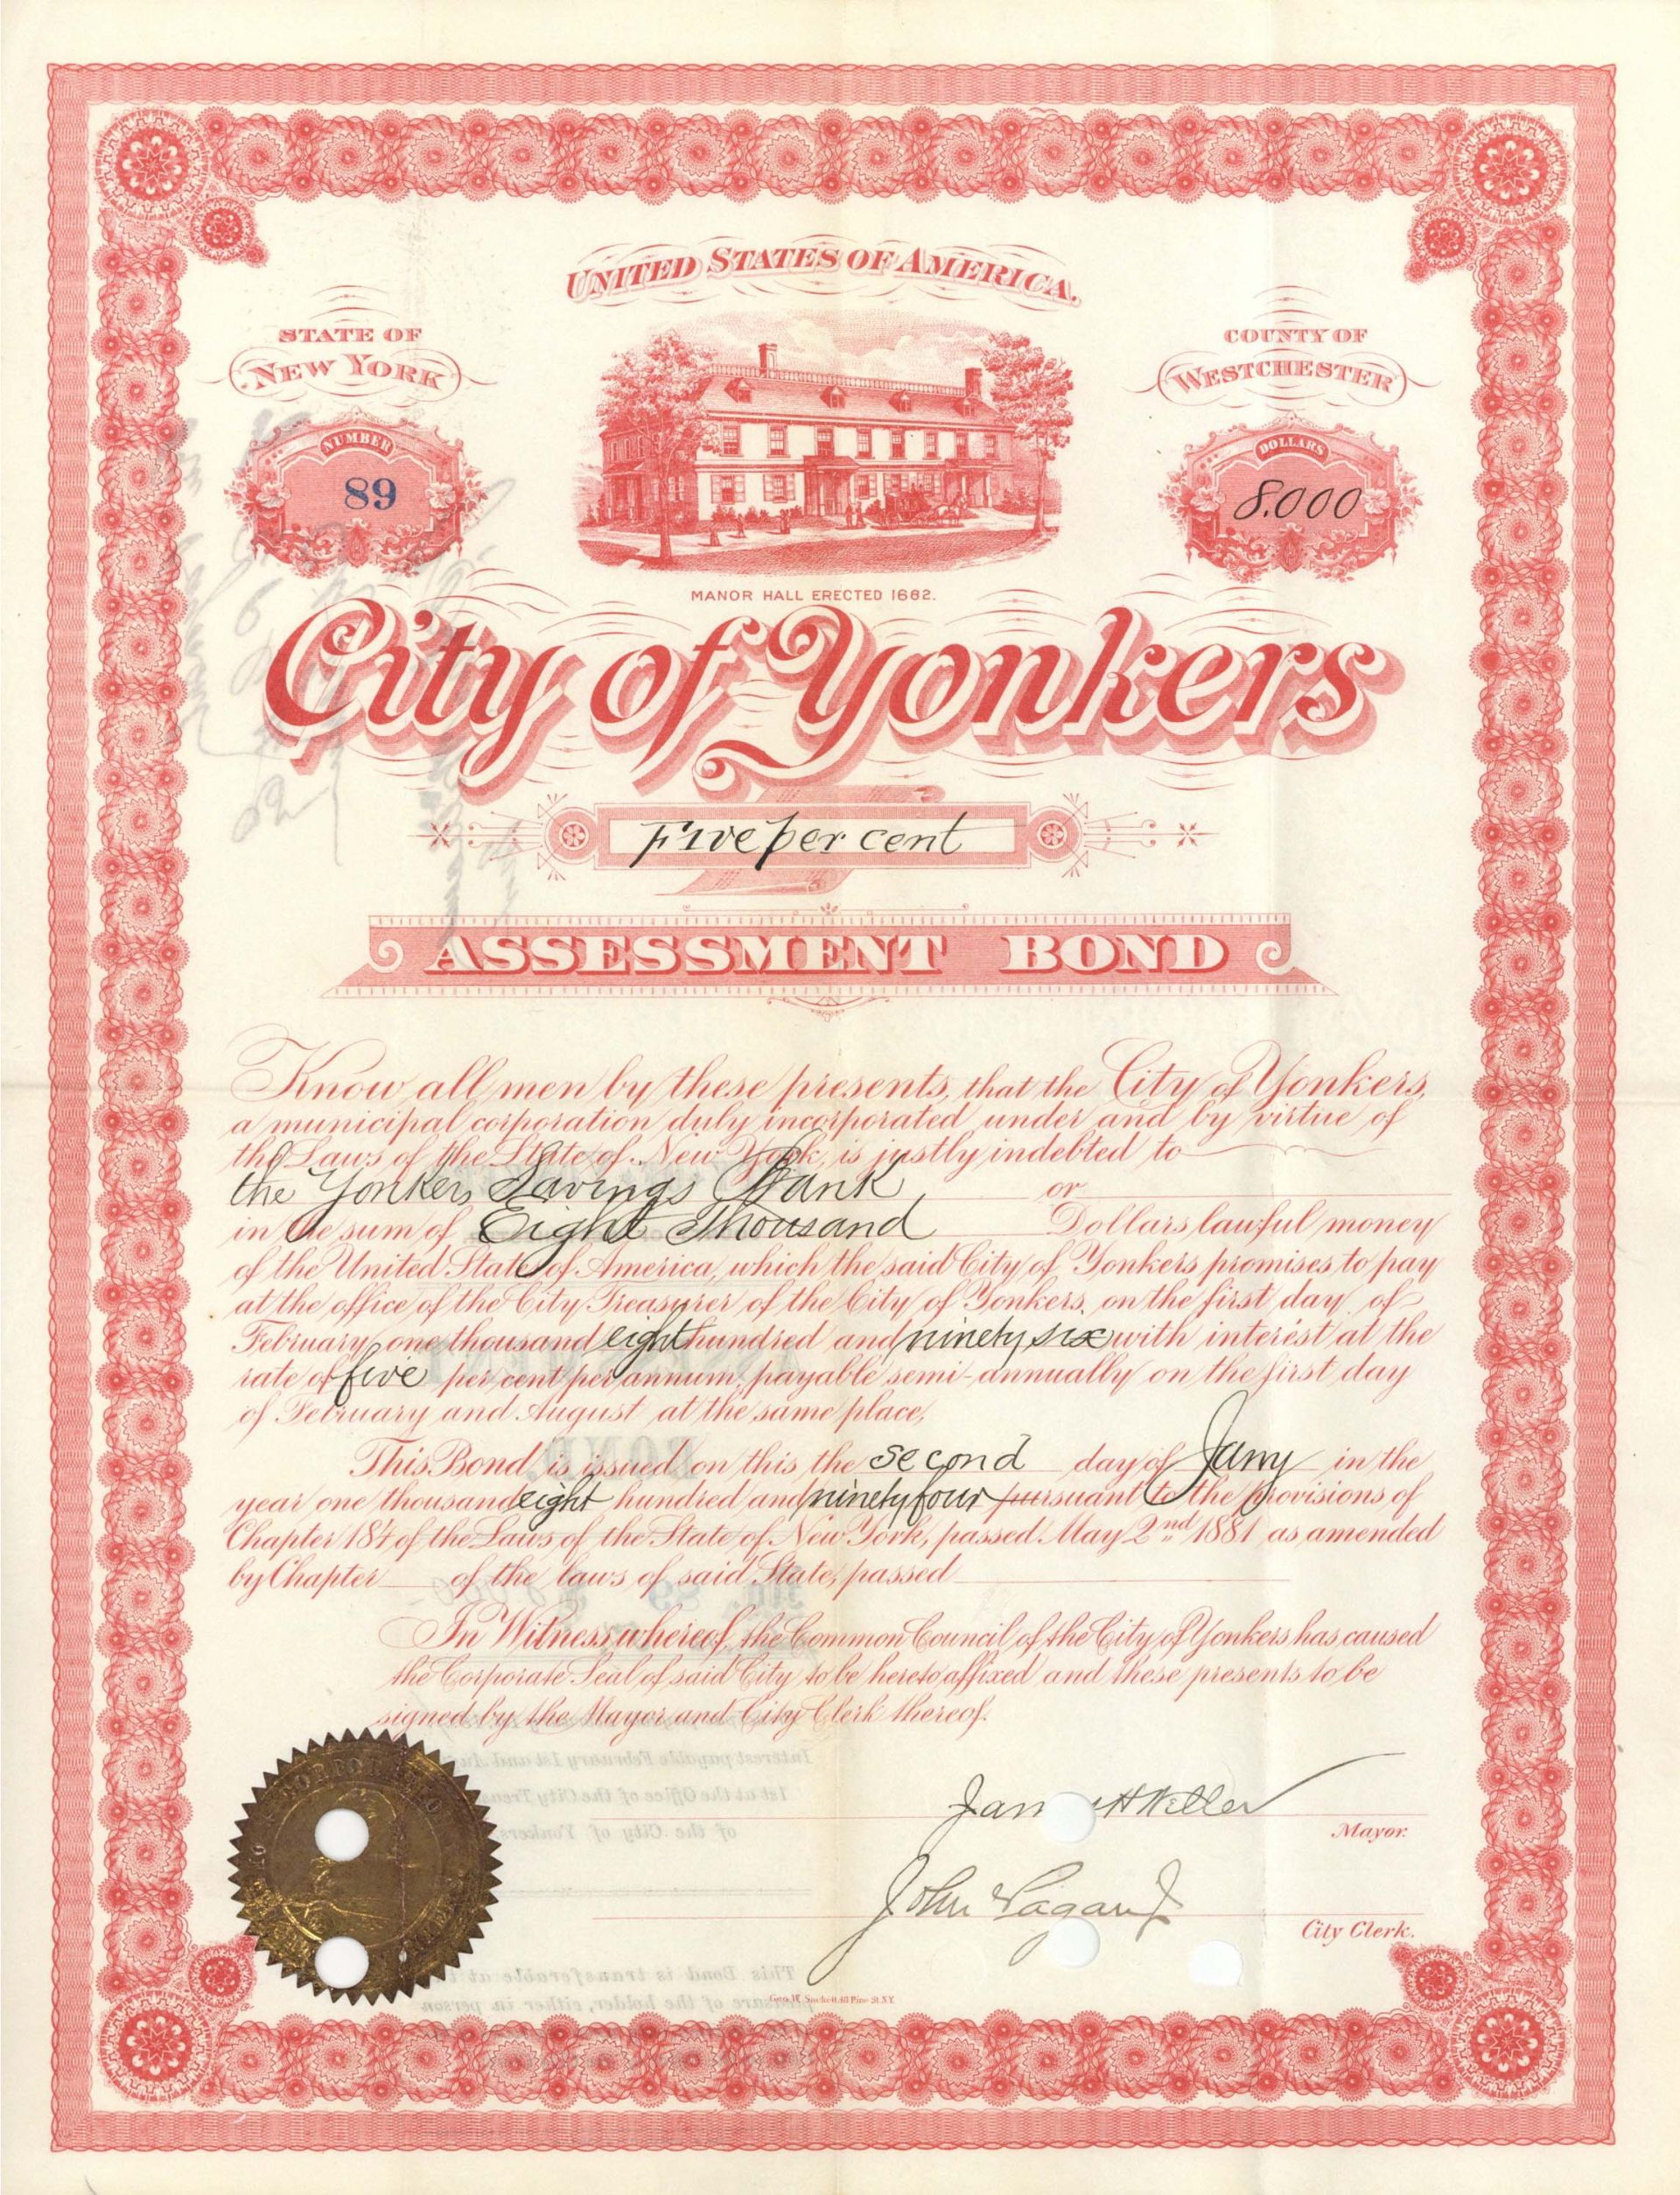 UNITED STATES OF AMERICA.
STATE OF
NEW YORK
COUNTY OF
WESTCHESTER
NUMBER
89
DOLLARS
8.000
MANOR HALL ERECTED 1682.
City of Yonkers
Five per cent
ASSESSMENT BOND
Know all men by these presents, that the City of Yonkers,
a municipal corporation duly incorporated under and by virtue of
the Laws of the State of New York, is justly indebted to
the Yonkers Savings Bank or
in the sum of Eight Thousand Dollars lawful money
of the United States of America, which the said City of Yonkers promises to pay
at the office of the City Treasurer of the City of Yonkers, on the first day of
February one thousand eight hundred and ninety six with interest at the
rate of five per cent per annum, payable semi-annually on the first day
of February and August at the same place,
This Bond is issued on this the second day of Jany in the
year one thousand eight hundred and ninety four pursuant to the provisions of
Chapter 184 of the Laws of the State of New York, passed May 2nd 1881 as amended
by Chapter of the laws of said State, passed
In Witness whereof, the Common Council of the City of Yonkers has caused
the Corporate Seal of said City to be hereto affixed and these presents to be
signed by the Mayor and City Clerk thereof.
Weller
Mayor.
John Pagan Jr
City Clerk.